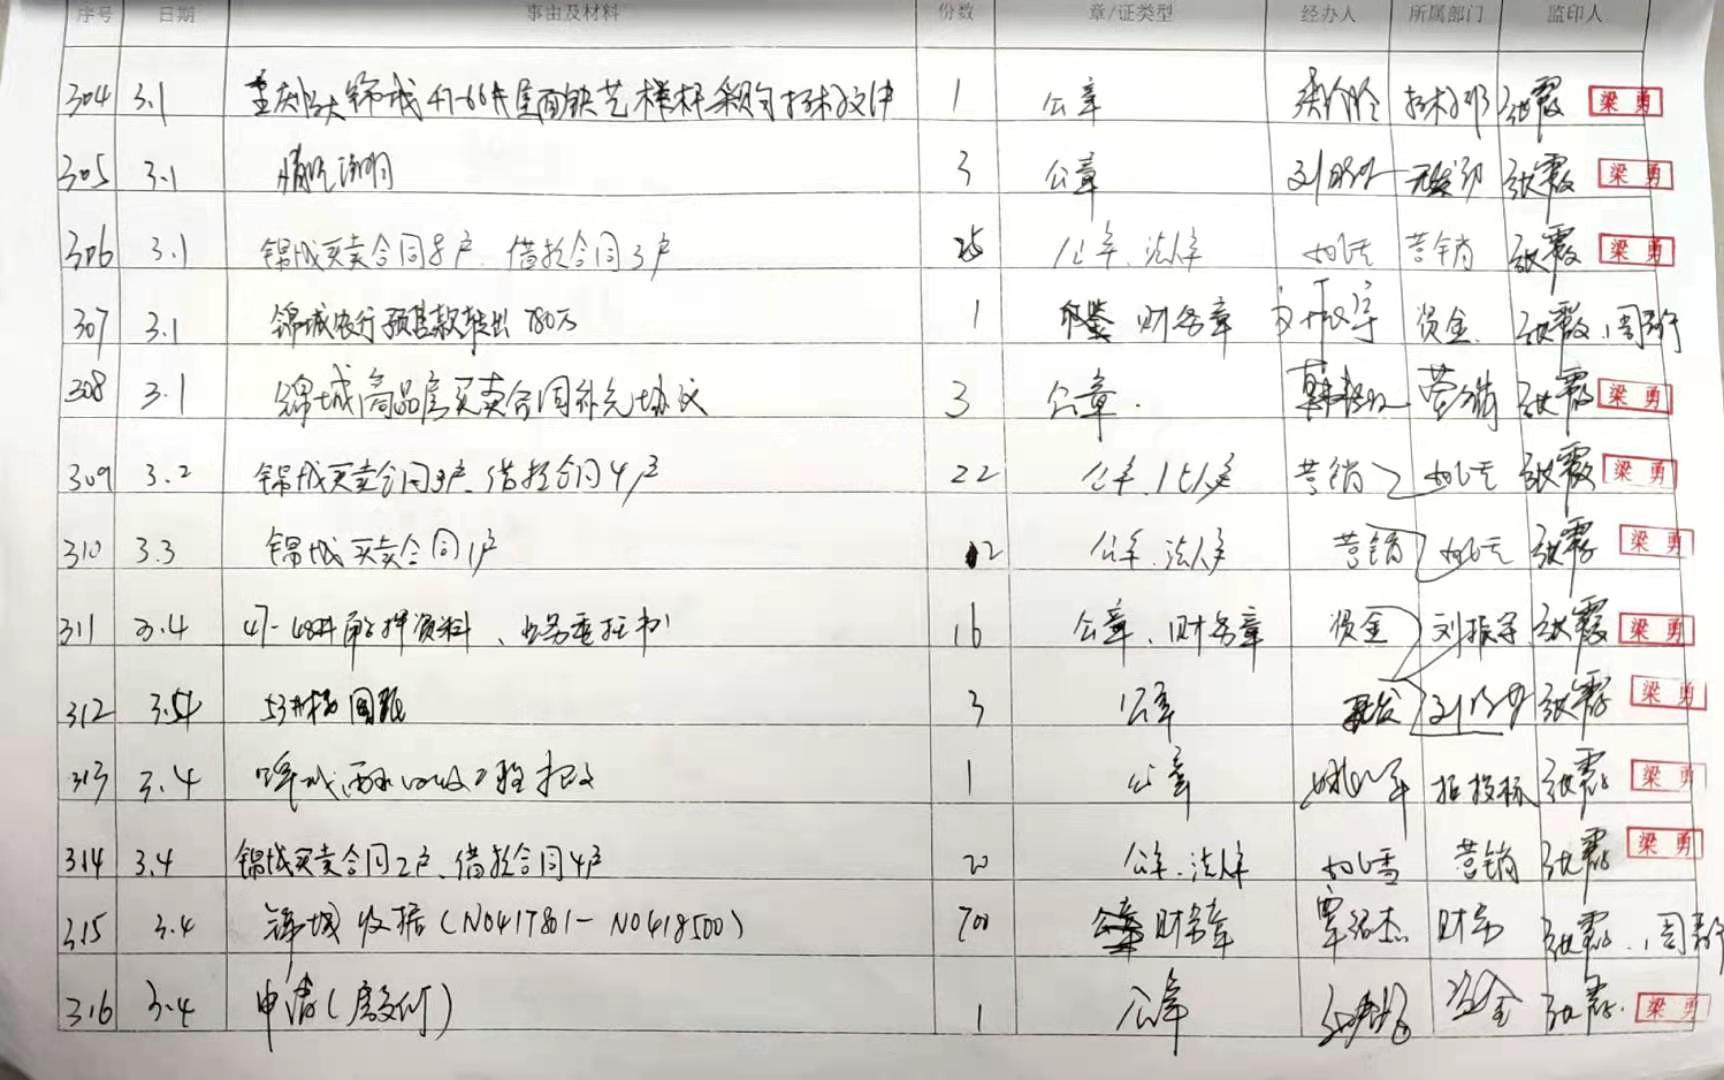 序号 日期 事由及材料 份数 章/证类型 经办人 所属部门 监印人
304 3.1 重庆恒大锦城47-66#屋面铁艺栏杆采购招标文件 1 公章 招标部 张霞 梁勇
305 3.1 情况说明 3 公章 开发部 张霞 梁勇
306 3.1 锦城买卖合同8户、借款合同3户 25 公章、法人章 营销 张霞 梁勇
307 3.1 锦城农行预售款转出780万 1 财务章 刘振宇 资金 张霞、周
308 3.1 锦城商品房买卖合同补充协议 3 公章 营销 张霞 梁勇
309 3.2 锦城买卖合同3户、借款合同4户 22 公章、法人章 营销 张霞 梁勇
310 3.3 锦城买卖合同1户 12 公章、法人章 营销 张霞 梁勇
311 3.4 47-68#解押资料、业务委托书 16 公章、财务章 资金 刘振宇 张霞 梁勇
312 3.4 53#楼 3 公章 开发 张霞 梁勇
313 3.4 1 公章 招投标 张霞 梁勇
314 3.4 锦城买卖合同2户、借款合同4户 20 公章、法人章 营销 张霞 梁勇
315 3.4 锦城收据(N0417801-N0418500) 700 财务章 覃绍杰 财务 张霞、周
316 3.4 申请 1 公章 资金 张霞 梁勇